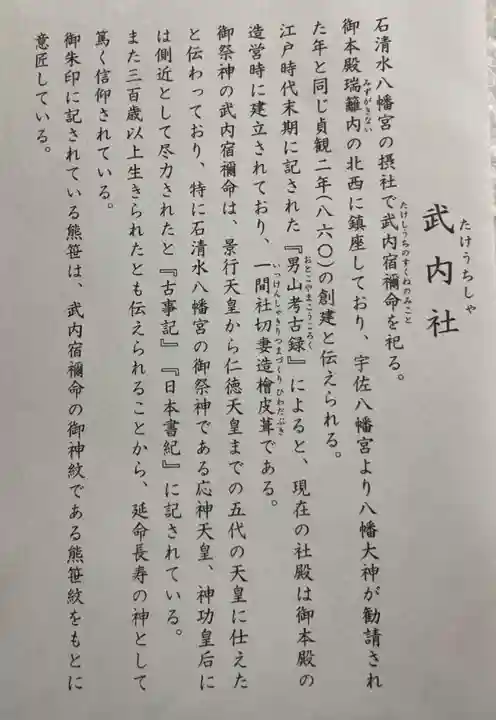 武内社
たけうちしゃ
石清水八幡宮の摂社で武内宿禰命を祀る。
たけしうちのすくねのみこと
御本殿瑞籬内の北西に鎮座しており、宇佐八幡宮より八幡大神が勧請され
みずがきない
た年と同じ貞観二年(八六〇)の創建と伝えられる。
江戸時代末期に記された『男山考古録』によると、現在の社殿は御本殿の
おとこやまこうころく
造営時に建立されており、一間社切妻造檜皮葺である。
いっけんしゃきりつまづくりひわだぶき
御祭神の武内宿禰命は、景行天皇から仁徳天皇までの五代の天皇に仕えた
と伝わっており、特に石清水八幡宮の御祭神である応神天皇、神功皇后に
は側近として尽力されたと『古事記』『日本書紀』に記されている。
また三百歳以上生きられたとも伝えられることから、延命長寿の神として
篤く信仰されている。
御朱印に記されている熊笹は、武内宿禰命の御神紋である熊笹紋をもとに
意匠している。